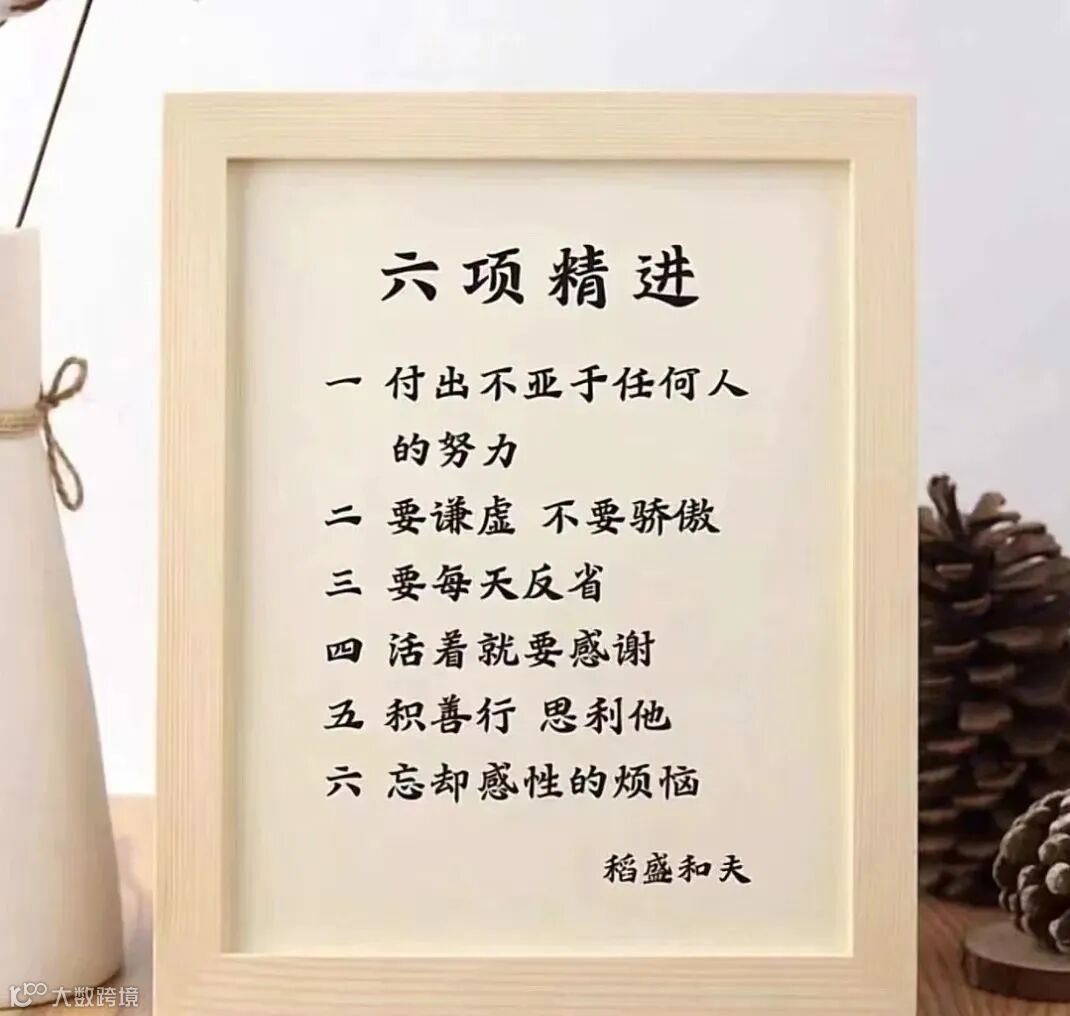 六项精进
一 付出不亚于任何人
的努力
二 要谦虚 不要骄傲
三 要每天反省
四 活着就要感谢
五 积善行 思利他
六 忘却感性的烦恼
稻盛和夫
大数跨境